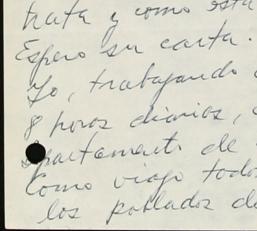 trata y como esta
Espero su carta.
Yo, trabajando
8 horas diarias,
apartamento de
Como viajo todos
los poblados de